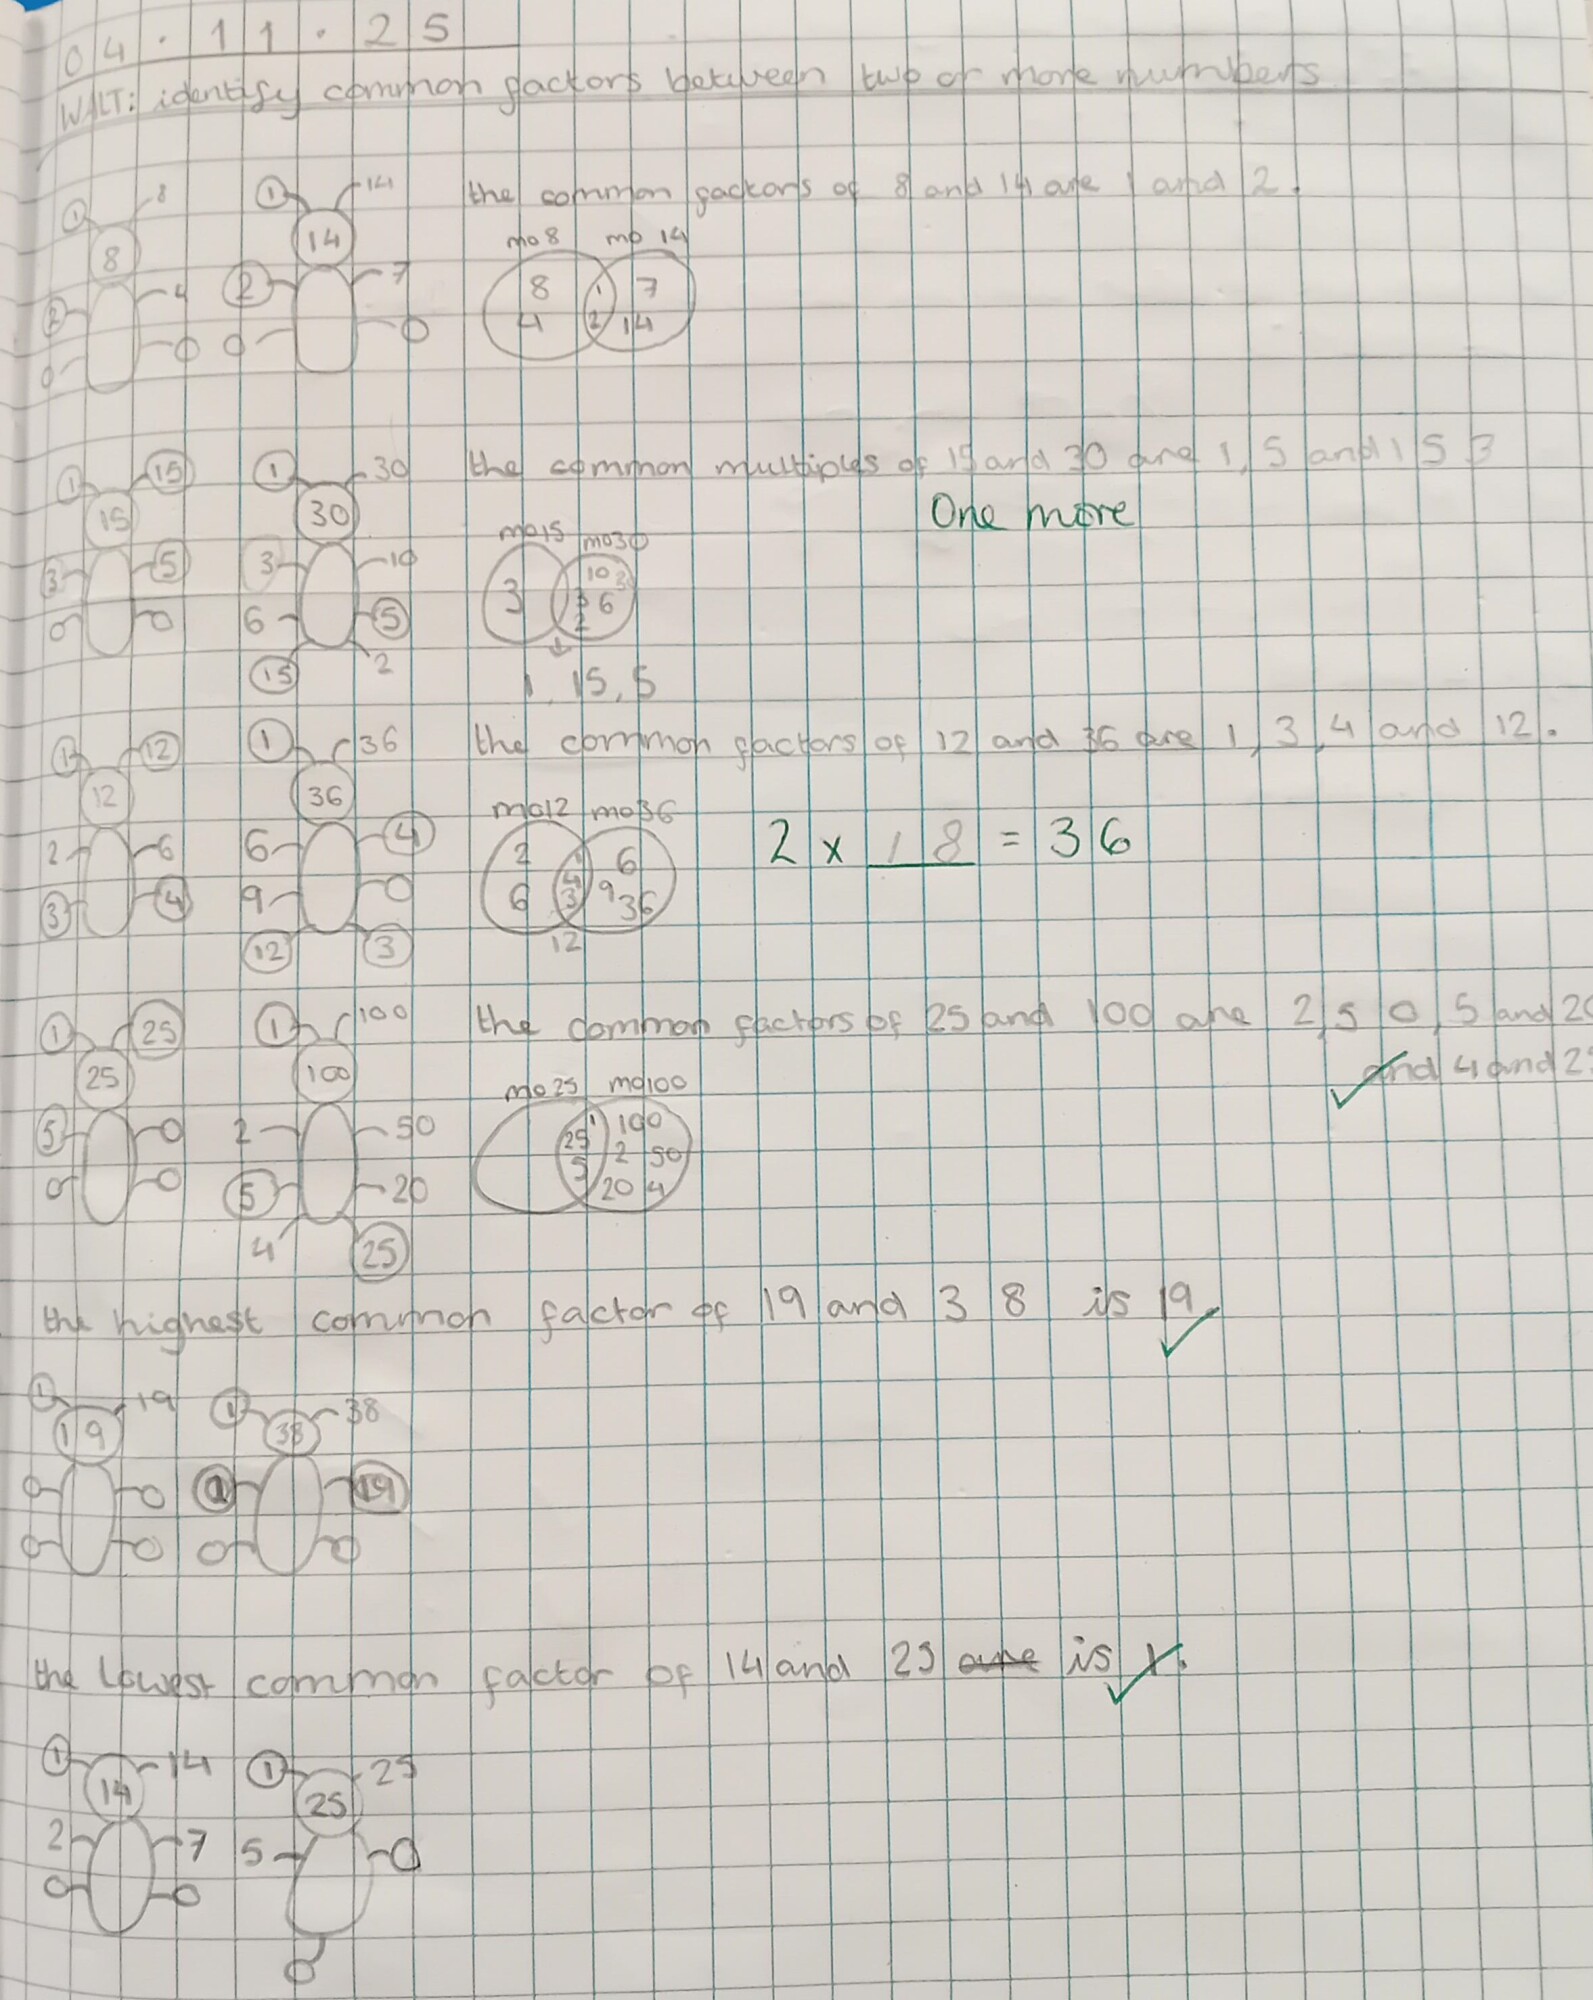 04.11.25
WALT: identify common factors between two or more numbers
the common factors of 8 and 14 are 1 and 2.
1 8
8
2 4
0 0
1 14
14
2 7
0 0
mo 8 mo 14
8 1 7
4 2 14
the common multiples of 15 and 30 are 1, 5 and 15 3
One more
1 15
15
3 5
0 0
1 30
30
3 10
6 5
15 2
mo15 mo30
3 10 30
6
2
1, 15, 5
the common factors of 12 and 36 are 1, 3, 4 and 12.
1 12
12
2 6
3 4
1 36
36
6 4
9 0
12 3
mo12 mo36
2 1 6
6 4 3 9 36
12
2 x 18 = 36
the common factors of 25 and 100 are 2, 50, 5 and 20
and 4 and
1 25
25
5 0
0 0
1 100
100
2 50
5 20
4 25
mo 25 mo100
1 100
25 2 50
5 20 4
the highest common factor of 19 and 38 is 19.
1 19
19
0 0
0 0
1 38
38
19
0 0
the lowest common factor of 14 and 25 are is 1.
1 14
14
2 7
0 0
1 25
25
5 0
0